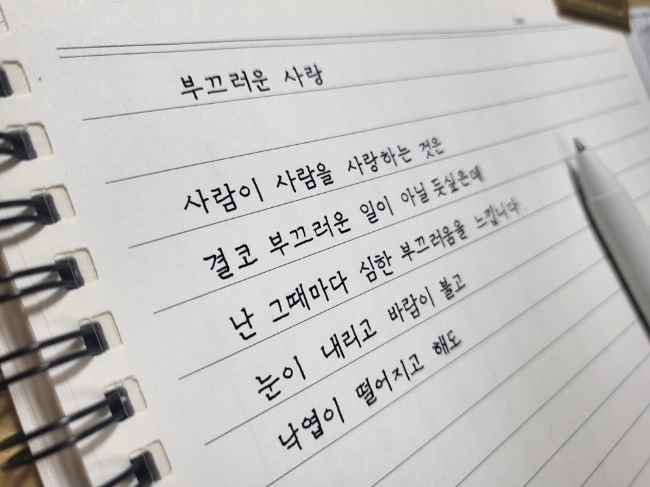 부끄러운 사랑
사람이 사람을 사랑하는 것은
결코 부끄러운 일이 아닐 듯싶은데
난 그때마다 심한 부끄러움을 느낍니다.
눈이 내리고 바람이 불고
낙엽이 떨어지고 해도